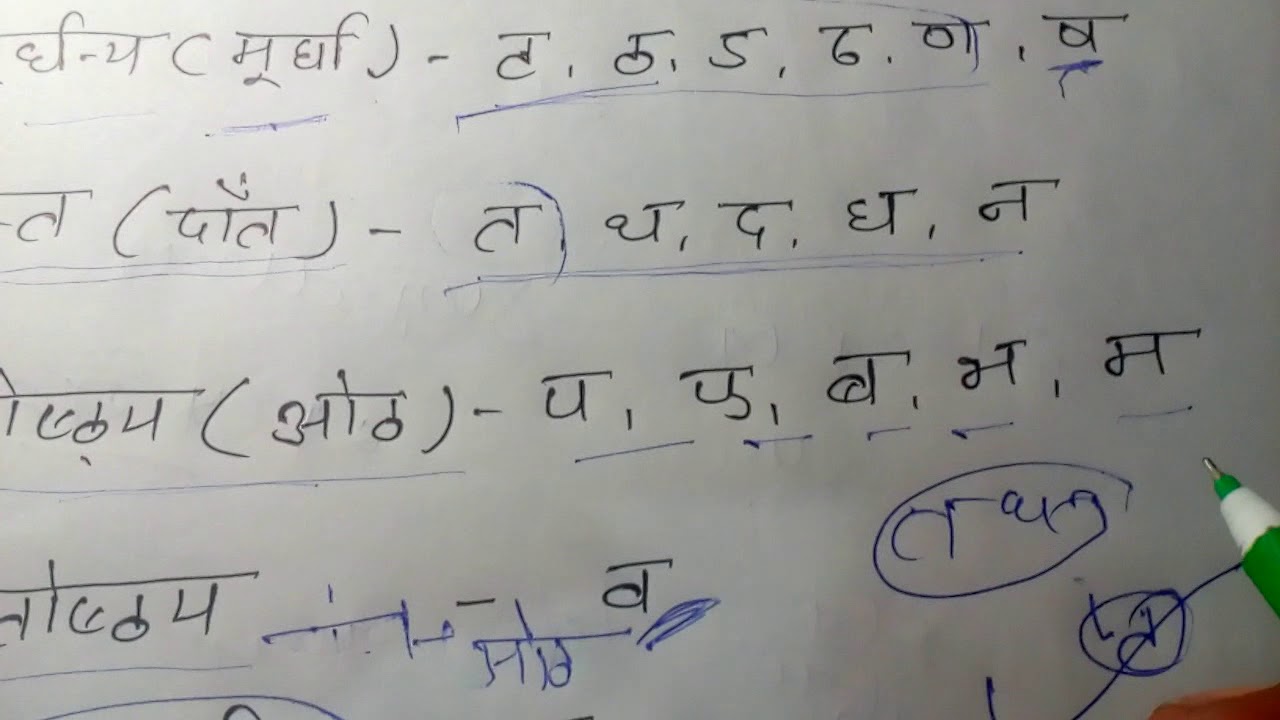 र्धन्य (मूर्धा) - ट, ठ, ड, ढ, ण, ष
न्त (दाँत) - त थ, द, ध, न
ोष्ठ्य (ओठ) - प, फ, ब, भ, म
तोष्ठ्य - व
ओठ